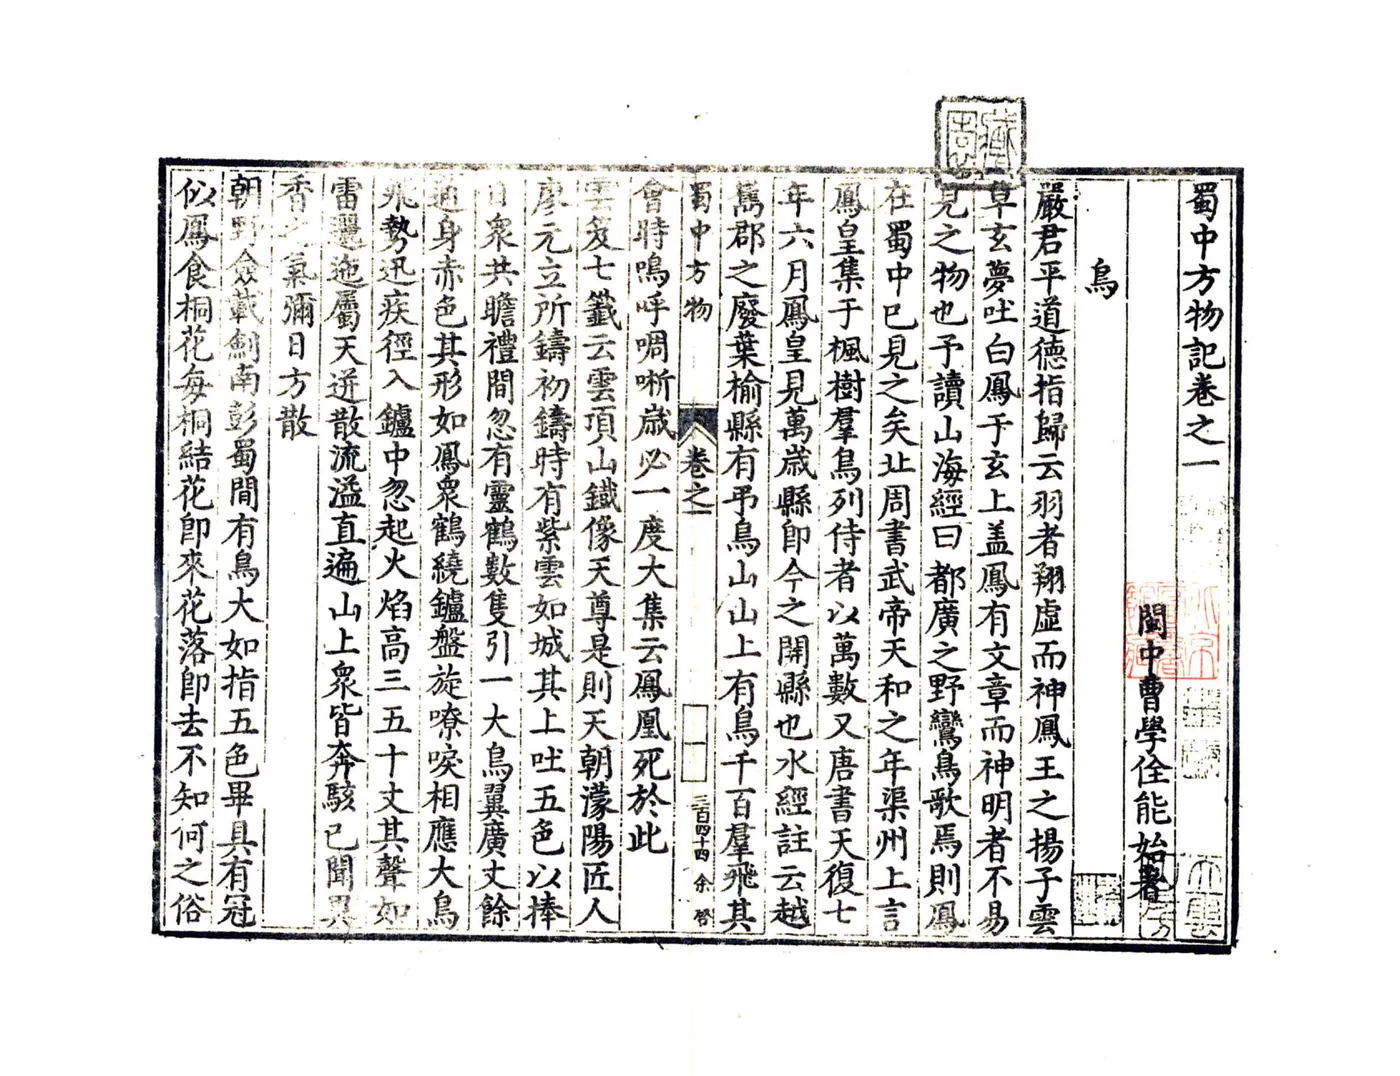 蜀中方物記卷之一
閩中曹學佺能始著
鳥
嚴君平道德指歸云羽者翔虛而神鳳王之揚子雲
草玄夢吐白鳳于玄上盖鳳有文章而神明者不易
見之物也予讀山海經曰都廣之野鸞鳥歌焉則鳳
在蜀中巳見之矣北周書武帝天和之年渠州上言
鳳皇集于楓樹羣鳥列侍者以萬數又唐書天復七
年六月鳳皇見萬歲縣卽今之開縣也水經註云越
嶲郡之廢葉榆縣有弔鳥山山上有鳥千百羣飛其
蜀中方物
卷之一
一
三百四十四 余 啓
會時鳴呼啁唽歲必一度大集云鳳凰死於此
雲笈七籤云雲頂山鐵像天尊是則天朝濛陽匠人
廖元立所鑄初鑄時有紫雲如城其上吐五色以捧
日衆共瞻禮間忽有靈鶴數隻引一大鳥翼廣丈餘
通身赤色其形如鳳衆鶴繞鑪盤旋嘹唳相應大鳥
飛勢迅疾徑入鑪中忽起火焰高三五十丈其聲如
雷邐迤屬天迸散流溢直遍山上衆皆奔駭巳聞異
香之氣彌日方散
朝野僉載劍南彭蜀間有鳥大如指五色畢具有冠
似鳳食桐花每桐結花卽來花落卽去不知何之俗